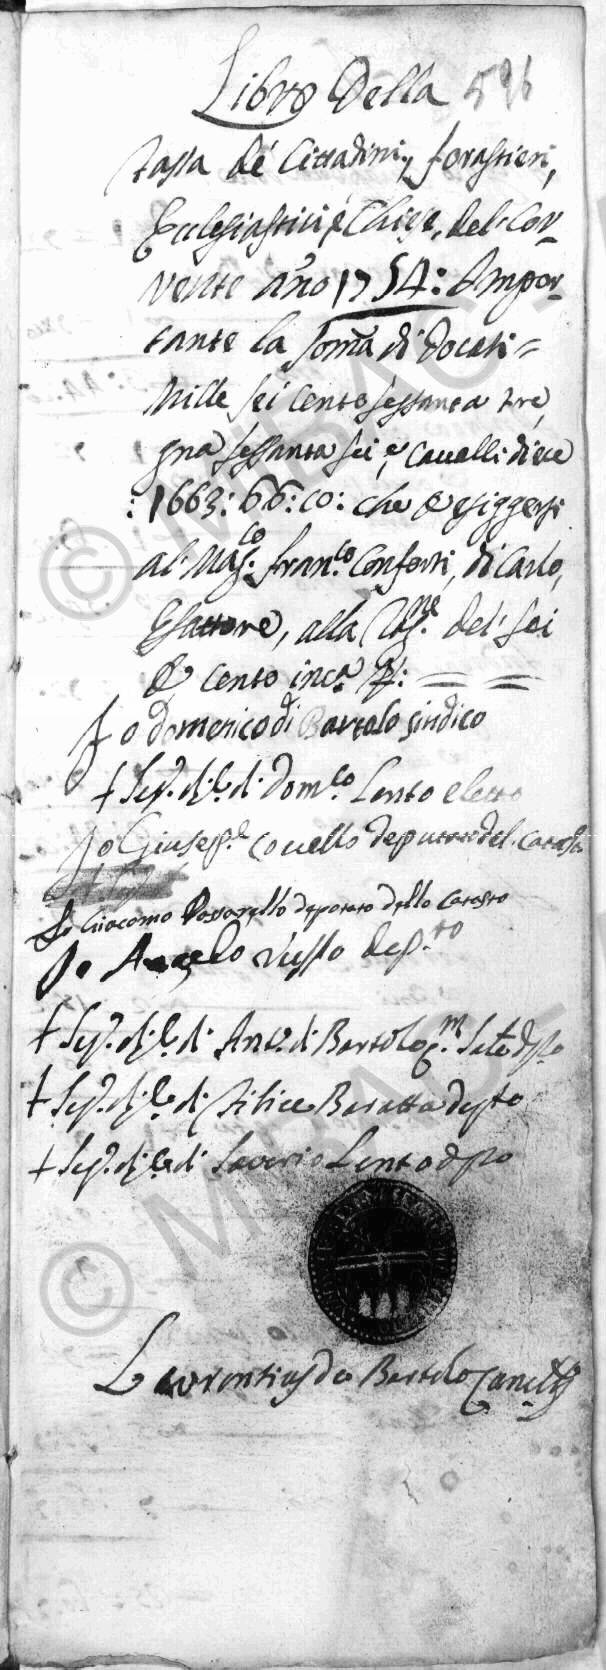 Libro Della 596
tassa de' Cittadini, forastieri,
Ecclesiastici, e Chiese, del Cor-
rente anno 1754: Impor-
tante la Somã di docati =
Mille sei cento sessanta tre,
grna sessanta sei, e, Cavalli diece
: 1663: 66: co: che esiggersi
al Mag.co Fran.co Conforti, di Carlo,
Esattore, alla del Sei
cento
Io Domenico di Bartolo Sindico
+ Seg.o di Dom.co Lento eletto
Io Giusep.e Covello deputato del Catasto
Io Giacomo Passarello deputato dello Catasto
Io Angelo Russo dep.to
+ Seg.o di Ant.o di Bartolo
+ Seg.o di Filice Baratta depto
+ Seg.o di Saverio Lento dpto
Laurentius de Bartolo Canc
© MiBAC -
© MiBAC -